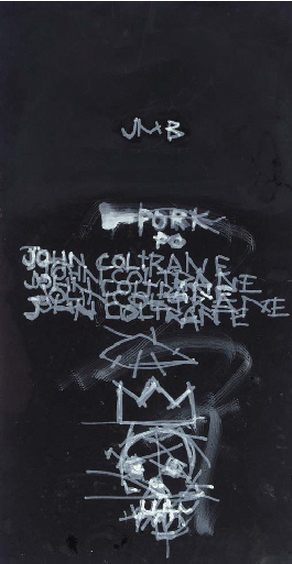 JMB
PORK
PO
JOHN COLTRANE
JOHN COLTRANE
JOHN COLTRANE
JOHN COLTRANE